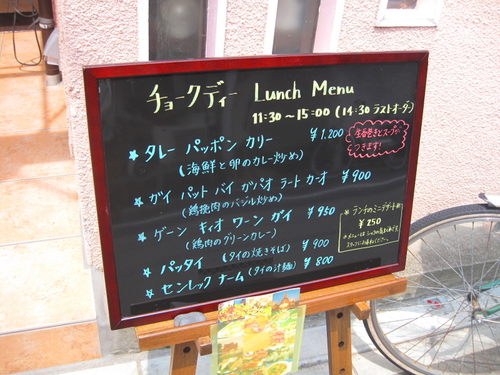 チョークディー Lunch Menu
11:30〜15:00 (14:30 ラストオーダー)
★ タレー パッポン カリー ¥1.200
(海鮮と卵のカレー炒め)
生春巻きとスープが
つきます!
★ ガイ パット バイ ガパオ ラート カーオ ¥900
(鶏挽肉のバジル炒め)
★ ゲーン キィオ ワーン ガイ ¥950
(鶏肉のグリーンカレー)
★ パッタイ (タイの焼きそば) ¥900
★ センレック ナーム (タイの汁麺) ¥800
ランチのミニデザート
¥250